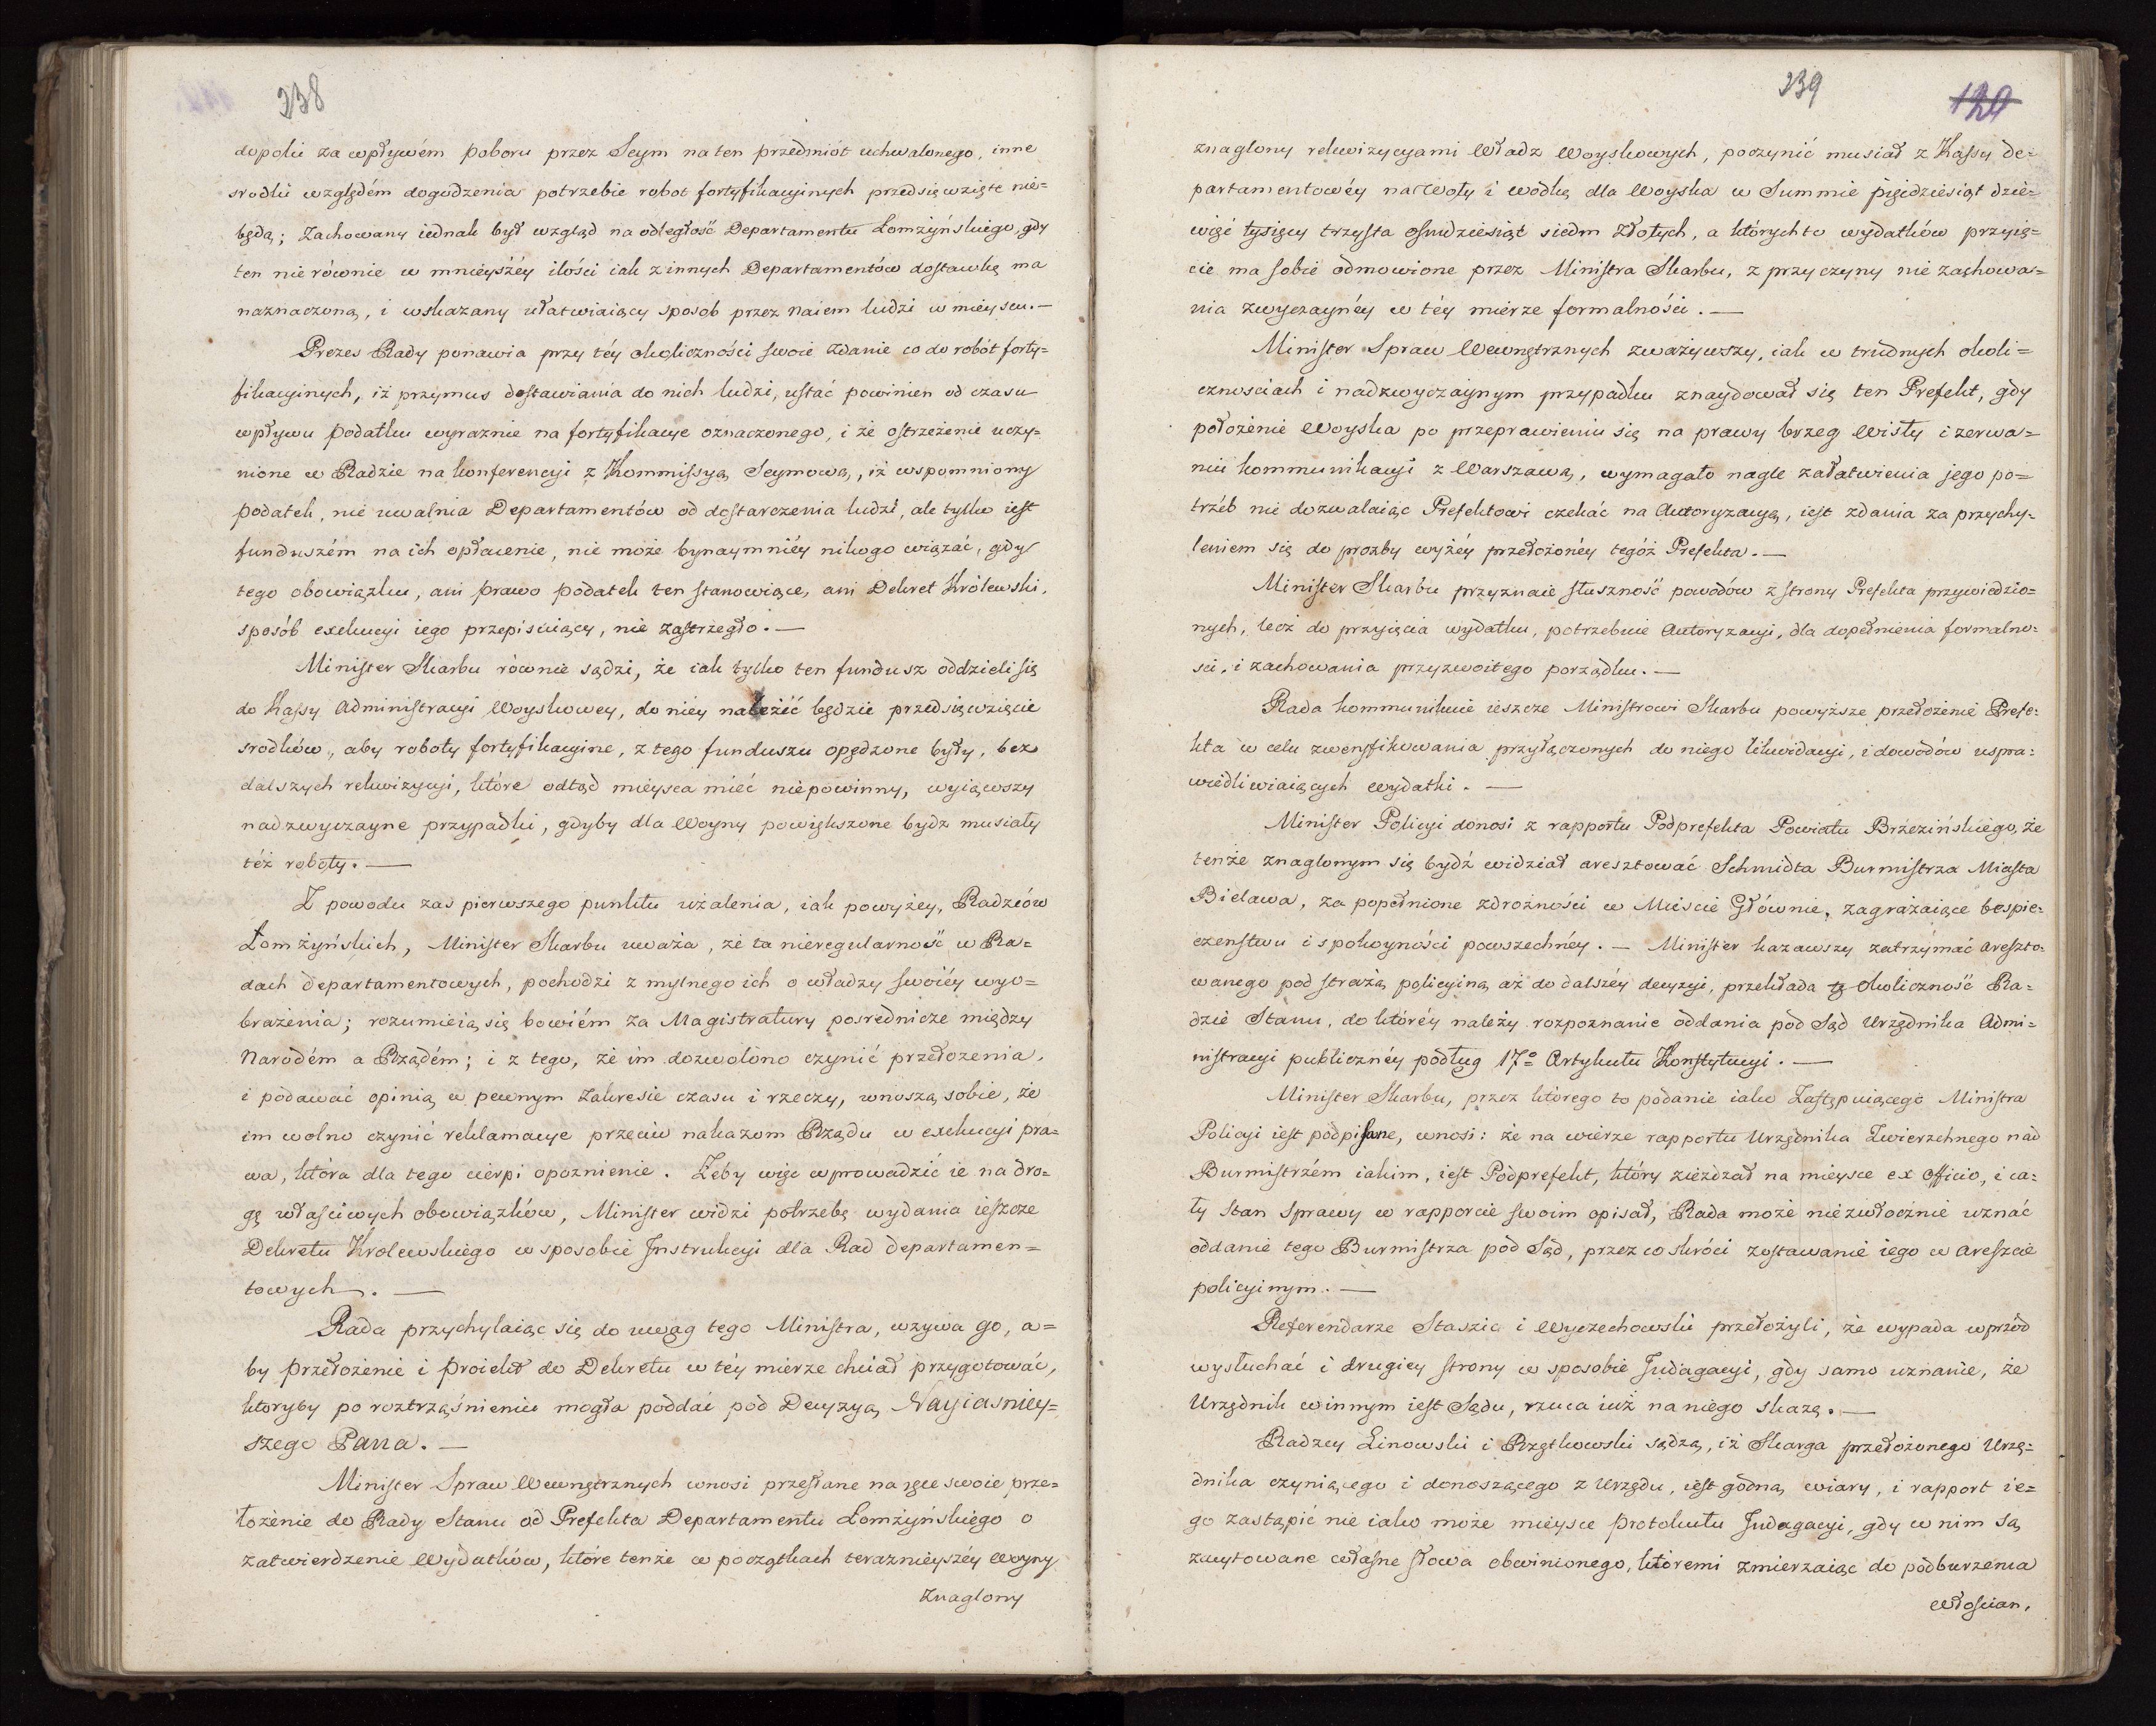 238
dopoki za wpływém poboru przez Seym na ten przedmiót uchwalonego, inne
srodki względém dogodzenia potrzebie robot fortyfikacyinych przedsięwzięte nie=
będą; Zachowany iednak był wzgląd na odległość Departamentu Łomżyńskiego, gdy
ten nie równie w mnieyszéy ilości iak z innych Departamentów dostawkę ma
naznaczoną, i wskazany ułatwiaiący sposob przez naiem ludzi w mieyscu. —
Prezes Rady ponawia przy téy okoliczności swoie zdanie co do robót forty=
fikacyinych, iż przymus dostawiania do nich ludzi, ustać powinien od czasu
wpływu podatku wyraznie na fortyfikacye oznaczonego, i że ostrzeżenie uczy=
nione w Radzie na konferencyi z Kommissyą Seymową, iż wspomniony
podatek, nie uwalnia Departamentów od dostarczenia ludzi, ale tylko iest
funduszém na ich opłacenie, nie może bynaymniéy nikogo wiązać, gdy
tego obowiązku, ani prawo podatek ten stanowiące, ani Dekret Królewski,
sposób exekucyi iego przepisuiący, nie zastrzegło. —
Minister Skarbu równie sądzi, że iak tylko ten fundusz oddzieli się
do Kassy Administracyi Woyskowey, do niey należéć będzie przedsięwzięcie
srodków, aby roboty fortyfikacyine, z tego funduszu opędzone były, bez
dalszych rekwizycyi, które odtąd mieysca mieć niepowinny, wyiąwszy
nadzwyczayne przypadki, gdyby dla Woyny powiększone bydz musiały
téż roboty. —
Z powodu zas pierwszego punktu użalenia, iak powyżey, Radzców
Łomżyńskich, Minister Skarbu uważa, że ta nieregularność w Ra=
dach departamentowych, pochodzi z mylnego ich o władzy swoiéy wyo=
brażenia; rozumieią się bowiém za Magistratury posrednicze między
Narodém a Rządém; i z tego, że im dozwolóno czynić przełożenia,
i podawać opinią w pewnym zakresie czasu i rzeczy, wnoszą sobie, że
im wolno czynić reklamacye przeciw nakazom Rządu w exekucyi pra=
wa, która dla tego cierpi opoznienie. Żeby więc wprowadzić ie na dro=
gę właściwych obowiązków, Minister widzi potrzebę wydania ieszcze
Dekretu Krolewskiego w sposobie Instrukcyi dla Rad departamen=
towych. —
Rada przychylaiąc się do uwag tego Ministra, wzywa go, a=
by przełożenie i proiekt do Dekretu w téy mierze chciał przygotować,
któryby po roztrząśnieniu mogła poddać pod Decyzyą Nayiasniey=
szego Pana. —
Minister Spraw Wewnętrznych wnosi przesłane na ręce swoie prze=
łożenie do Rady Stanu od Prefekta Departamentu Łomżyńskiego o
zatwierdzenie Wydatków, które tenże w początkach teraznieyszéy Woyny
Znaglony
239
120
znaglony rekwizycyami Władz Woyskowych, poczynić musiał z Kassy de=
partamentowéy na Woły i wódkę dla Woyska w Summie pięćdziesiąt dzie=
więć tysięcy trzysta osmdziesiąt siedm Złotych, a których to wydatków przyię=
cie ma sobie odmowione przez Ministra Skarbu, z przyczyny nie zachowa=
nia zwyczaynéy w téy mierze formalności. —
Minister Spraw Wewnętrznych zważywszy, iak w trudnych okoli=
cznosciach i nadzwyczaynym przypadku znaydował się ten Prefekt, gdy
położenie Woyska po przeprawieniu się na prawy brzeg Wisły i zerwa=
niu kommunikacyi z Warszawą, wymagało nagle załatwienia jego po=
trzéb nie dozwalaiąc Prefektowi czekać na Autoryzacyą, iest zdania za przychy=
leniem się do prozby wyżéy przełożonéy tegóż Prefekta. —
Minister Skarbu przyznaie słuszność powodów z strony Prefekta przywiedzio=
nych, lecz do przyięcia wydatku, potrzebuie Autoryzacyi, dla dopełnienia formalno=
sci, i zachowania przyzwoitego porządku. —
Rada kommunikuie ieszcze Ministrowi Skarbu powyższe przełożenie Prefe=
kta w celu zweryfikowania przyłączonych do niego likwidacyi, i dowodów uspra=
wiedliwiaiących wydatki. —
Minister Policyi donosi z rapportu Podprefekta Powiatu Brzezińskiego, że
tenże znaglonym się bydź widział aresztować Schmidta Burmistrza Miasta
Bielawa, za popełnione zdrożności w Mieście Głównie, zagrażaiące bespie=
czenstwu i spokoyności powszechnéy. — Minister kazawszy zatrzymać areszto=
wanego pod strażą policyiną aż do dalszéy decyzyi, przekłada tę okoliczność Ra=
dzie Stanu, do któréy należy rozpoznanie oddania pod Sąd Urzędnika Admi=
nistracyi publicznéy podług 17º Artykułu Konstytucyi. —
Minister Skarbu, przez którego to podanie iako Zastępuiącego Ministra
Policyi iest podpisane, wnosi: że na wierze rapportu Urzędnika Zwierzchnego nad
Burmistrzém iakim, iest Podprefekt, który zieżdżał na mieysce ex officio, i ca=
ły stan sprawy w rapporcie swoim opisał, Rada może niezwłocznie uznać
oddanie tego Burmistrza pod Sąd, przez co skróci zostawanie iego w areszcie
policyinym. —
Referendarze Staszic i Wyczechowski przełożyli, że wypada wprzód
wysłuchać i drugiey strony w sposobie Indagacyi, gdy samo uznanie, że
Urzędnik winnym iest Sądu, rzuca iuż na niego skazę. —
Radzcy Linowski i Rzętkowski sądzą, iż Skarga przełożonego Urzę=
dnika czyniącego i donoszącego z Urzędu, iest godną wiary, i rapport ie=
go zastąpić nie iako może mieysce protokułu Indagacyi, gdy w nim są
zacytowane własne słowa obwinionego, któremi zmierzaiąc do podburzenia
Włoscian,